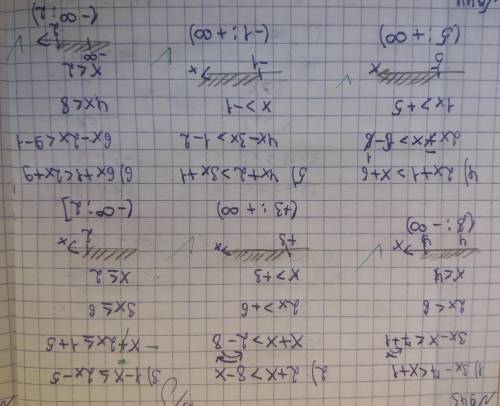 1) 3x-7<x+1
3x-x<7+1
2x<6
x<4
4 x
(8;-∞)
2) 2+x>8-x
x+x>2-8
2x>+6
x>+3
+3 x
(+3;+∞)
3) 1-x≤2x-5
-x+2x≤1+5
3x≤6
x≤2
2 x
(-∞;2]
4) 2x+1>x+6
1x>+5
5 x
(5;+∞)
5) 4x+2>3x+1
4x-3x>1-2
x>-1
-1 x
(-1;+∞)
6) 6x+1<2x+9
6x-2x<9-1
4x<8
x<2
-∞ 2
(-∞;2)